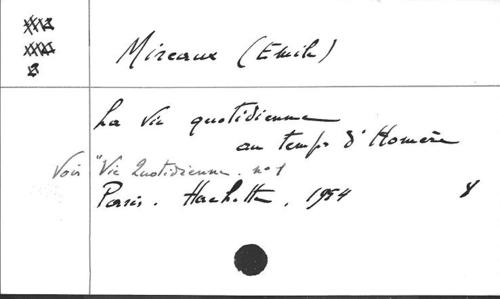 Mireaux (Emile)
La vie quotidienne
au temps d'Homère
Voir "Vie Quotidienne. n° 1
Paris. Hachette. 1954 8